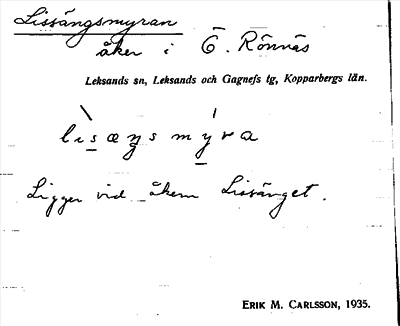 Lissängsmyran
åker i Ö. Rönnäs
Leksands sn, Leksands och Gagnefs tg, Kopparbergs län.
lisæŋs myra
Ligger vid åkern Lissänget.
ERIK M. CARLSSON, 1935.